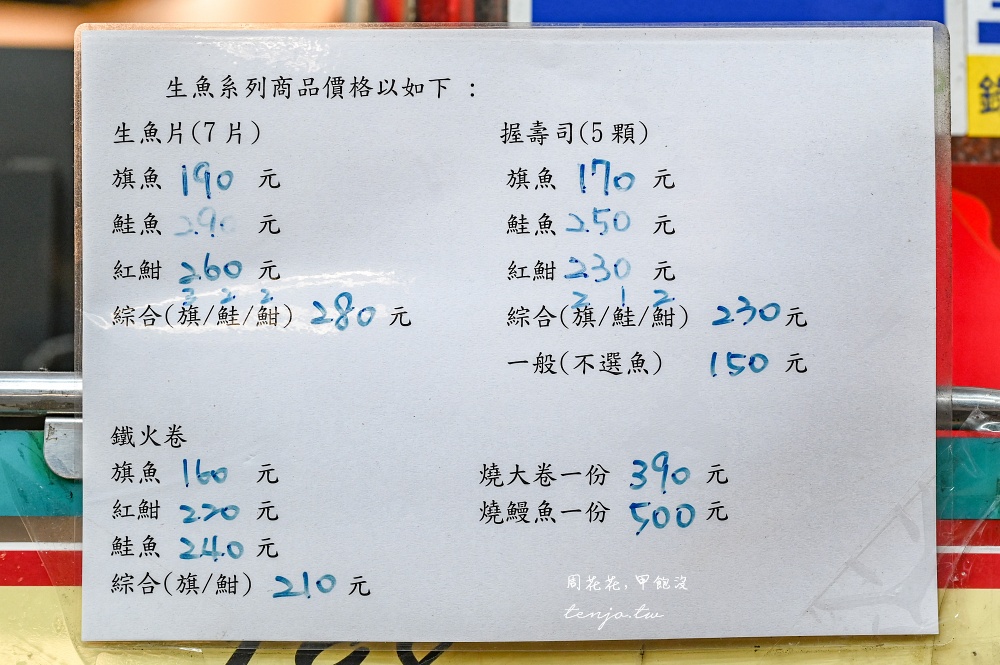 生魚系列商品價格以如下 :
生魚片(7片)
旗魚 190 元
鮭魚 290 元
紅魽 260 元
3 2 2
綜合(旗/鮭/魽) 280 元
握壽司(5顆)
旗魚 170 元
鮭魚 250 元
紅魽 230 元
2 1 2
綜合(旗/鮭/魽) 230元
一般(不選魚) 150 元
鐵火卷
旗魚 160 元
紅魽 220 元
鮭魚 240 元
綜合(旗/魽) 210 元
燒大卷一份 390 元
燒鰻魚一份 500 元
周花花,甲飽沒
tenjo.tw